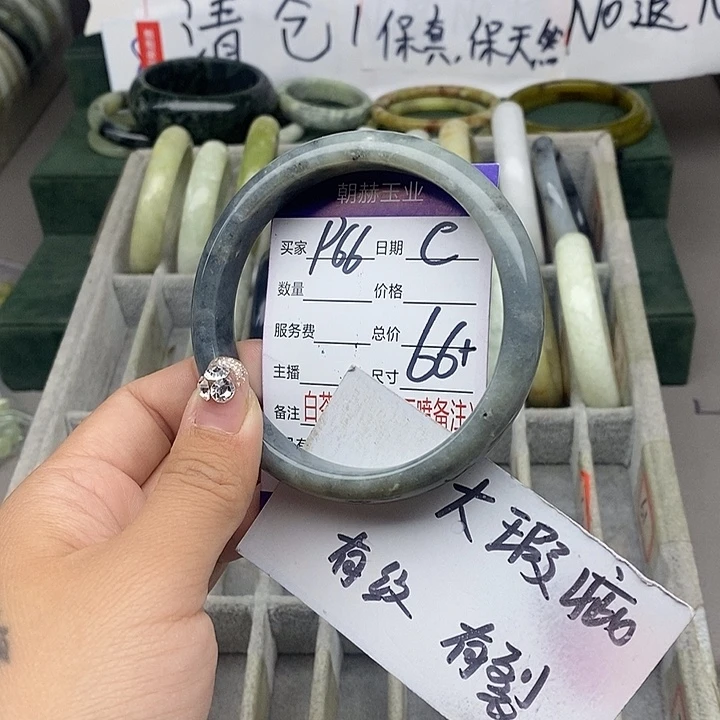 清仓! 保真,保天然 No退
朝赫玉业
买家 P66 日期 C
数量 价格
服务费 总价
主播 尺寸 66+
备注 白茶 喷备注
大瑕疵
有纹 有裂